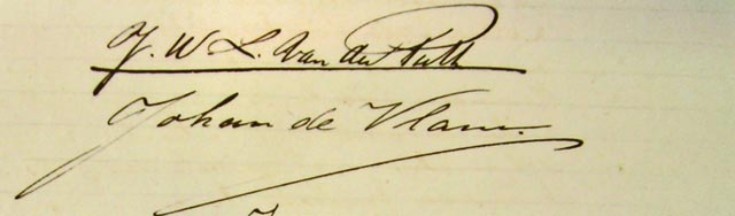 J. W. L. van der Putt
Johan de Vlam.